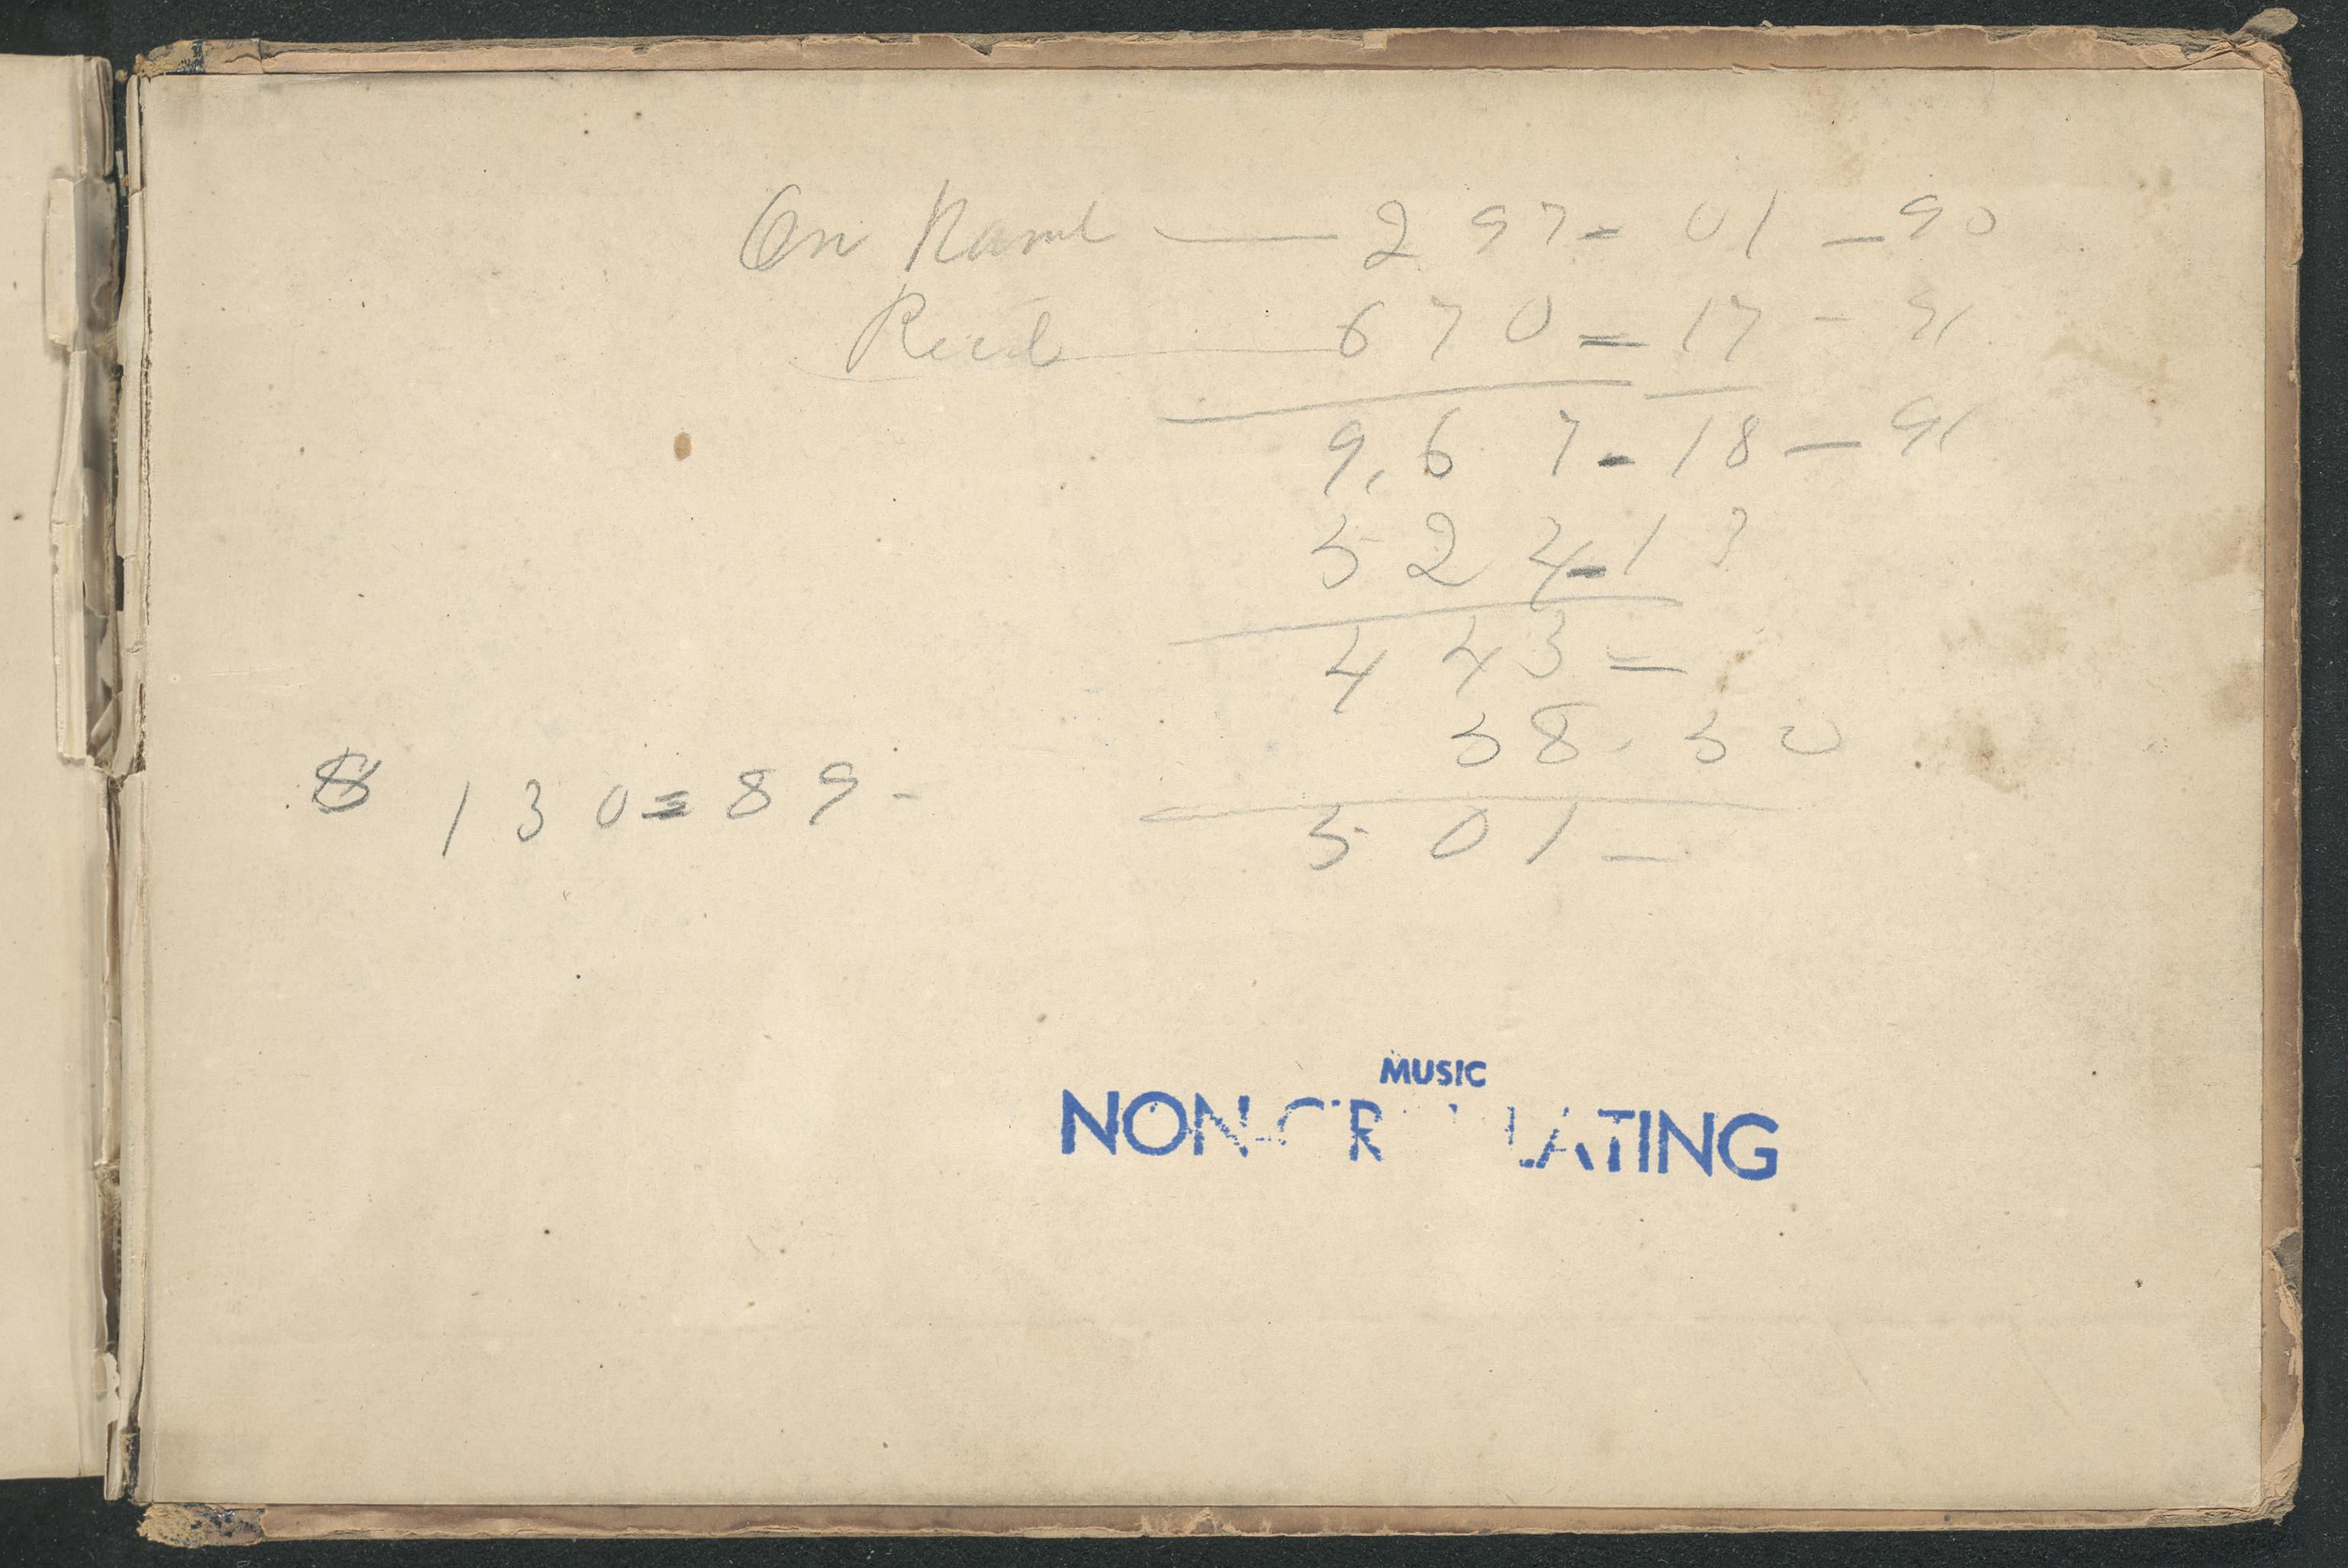 On Hand — 297 - 01 - 90
Recd — 670 = 17 - 91
9,67 - 18 - 91
524 - 13
443 =
58. 50
$ 130 = 89 -
501 -
MUSIC
NON-CIRCULATING